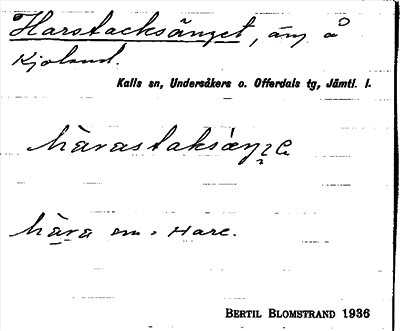 Harstacksänget, äng å
Kjoland.
Kalls sn, Undersåkers o. Offerdals tg, Jämtl. l.
hàrastaksæŋ̀ɛ
hàra sm. Hare.
BERTIL BLOMSTRAND 1936